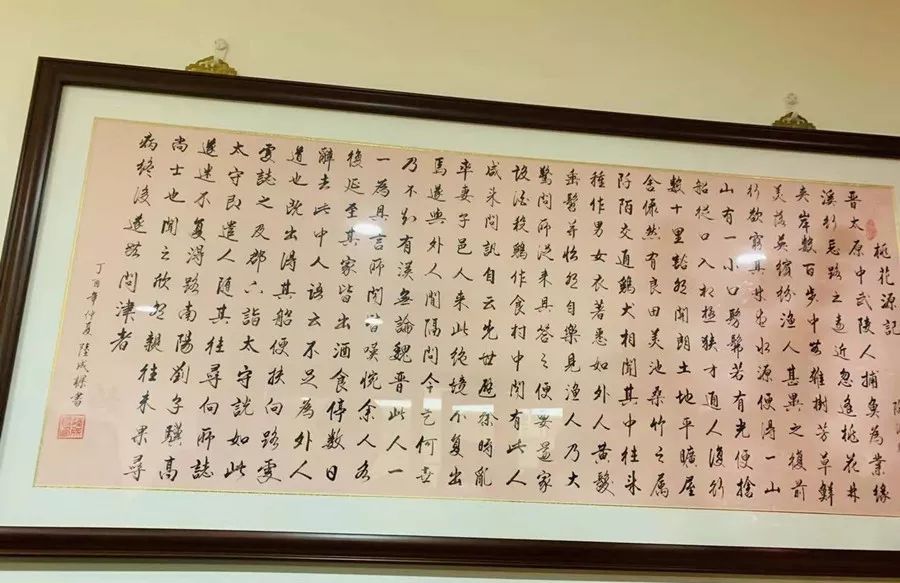 桃花源記 陶
晉太原中武陵人捕魚為業緣
溪行忘路之遠近忽逢桃花林
夾岸數百步中無雜樹芳草鮮
美落英繽紛漁人甚異之復前
行欲窮其林盡水源便得一山
山有一小口髣髴若有光便捨
船從口入初極狹才通人復行
數十里豁然開朗土地平曠屋
舍儼然有良田美池桑竹之屬
阡陌交通雞犬相聞其中往來
種作男女衣著悉如外人黃髮
垂髫并怡然自樂見漁人乃大
驚問所從來具答之便要還家
設酒殺雞作食村中聞有此人
咸來問訊自云先世避秦時亂
率妻子邑人來此絕境不復出
焉遂與外人間隔問今是何世
乃不知有漢無論魏晉此人一
一為具言所聞皆嘆惋余人各
復延至其家皆出酒食停數日
辭去此中人語云不足為外人
道也既出得其船便扶向路處
處誌之及郡下詣太守說如此
太守即遣人隨其往尋向所誌
遂迷不復得路南陽劉子驥高
尚士也聞之欣然親往未果尋
病終後遂無問津者
丁酉年仲夏陸成樑書